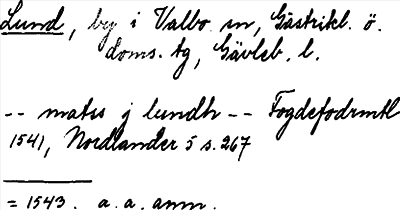 Lund, by i Valbo sn, Gästrikl. ö.
doms. tg, Gävleb. l.
-- matss j lundh -- Fogdefodrmtl
1541, Nordlander 5 s. 267
= 1543. a. a. anm.